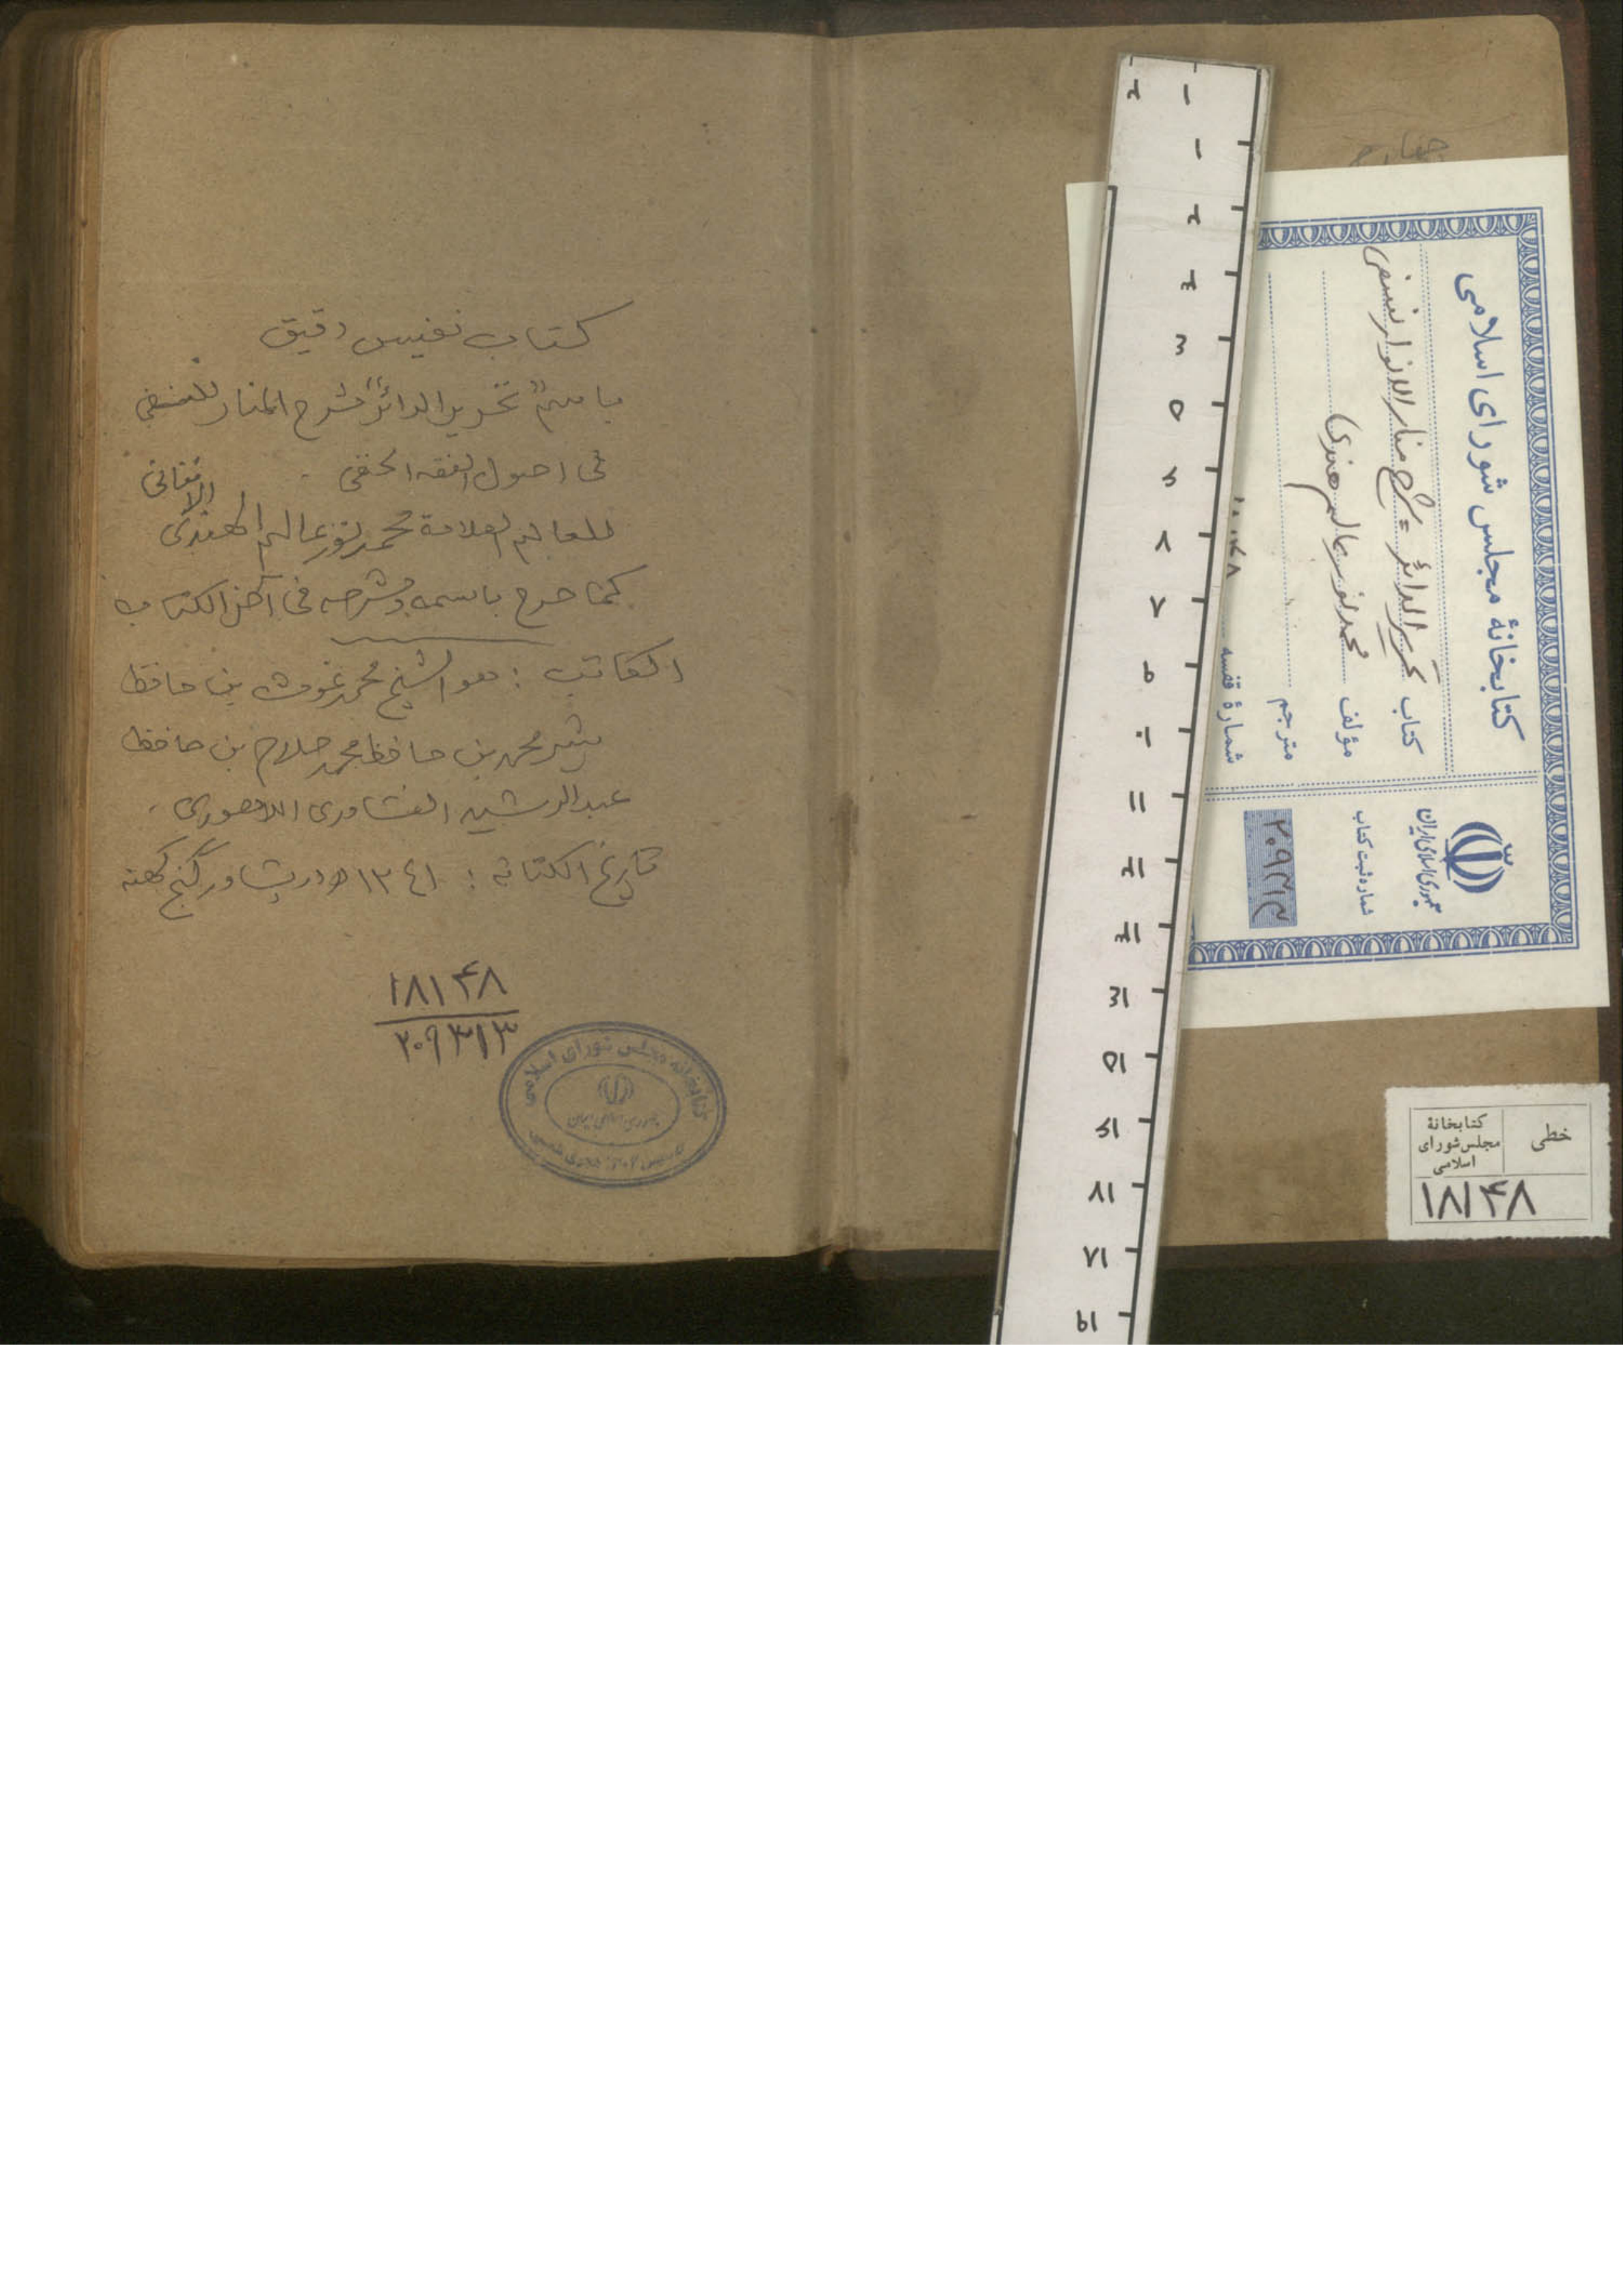 كتاب نفيس دقيق
باسم "تحرير الدائر" شرح المنار للنسفي
في اصول الفقه الحنفي
للعالم العلامة محمد نور عالم الهندى الافغانى
كما صرح باسمه وشرحه في آخر الكتاب
الكاتب : هو الشيخ محمد غوث بن حافظ
شير محمد بن حافظ محمد صلاح بن حافظ
عبد الرشيد الفشاورى اللاهورى .
تاريخ الكتابة : ١٢٤١ه در پشاور گنج كهنه
۱۸۱۴۸
۲۰۹۳۱۳
کتابخانه مجلس شورای اسلامی
جمهوری اسلامی ایران
کتابخانهٔ مجلس شورای اسلامی
کتاب تحریر الدائر = شرح منار الانوار نسفی
مؤلف محمد نور عالم هندی
مترجم
شمارهٔ قفسه
جمهوری اسلامی ایران
شماره ثبت کتاب
۲۰۹۳۱۳
خطی
کتابخانهٔ
مجلس شورای
اسلامی
۱۸۱۴۸